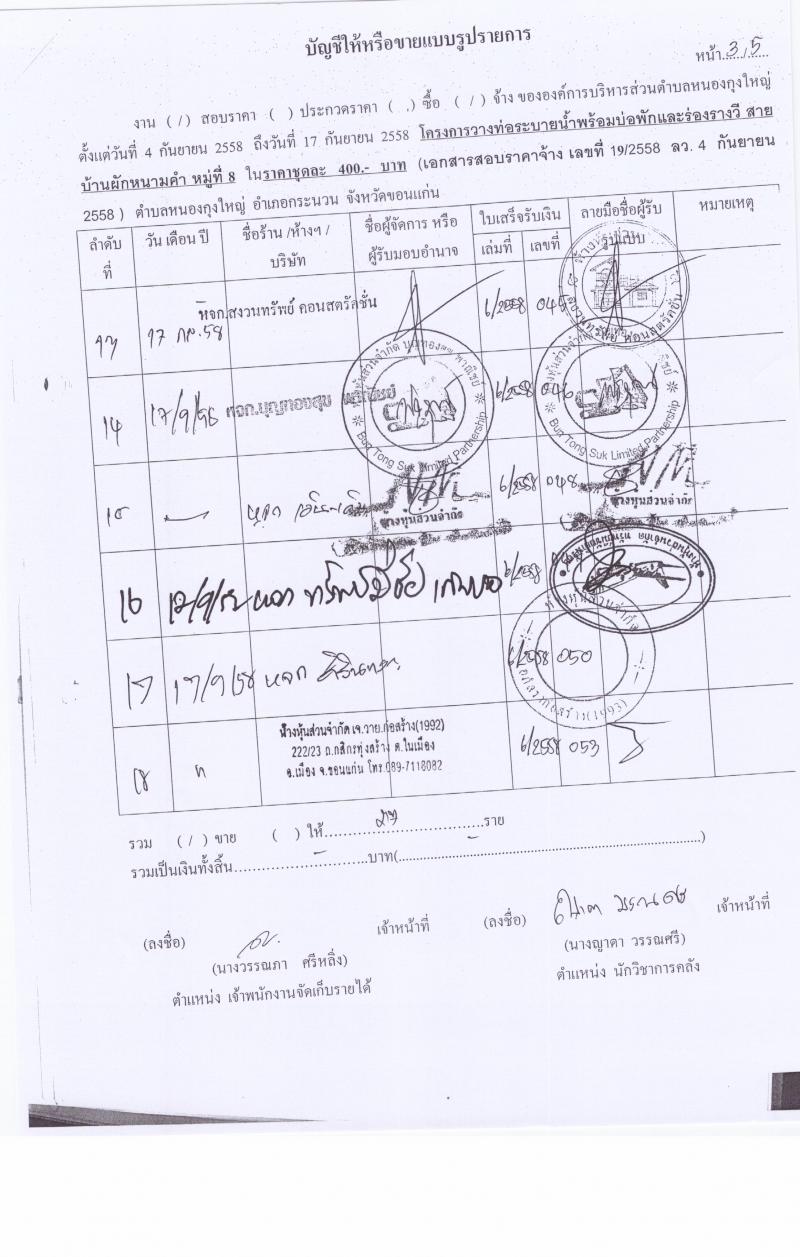 บัญชีให้หรือขายแบบรูปรายการ
หน้า 3/5
งาน ( / ) สอบราคา ( ) ประกวดราคา ( ) ซื้อ ( / ) จ้าง ขององค์การบริหารส่วนตำบลหนองกุงใหญ่
ตั้งแต่วันที่ 4 กันยายน 2558 ถึงวันที่ 17 กันยายน 2558 โครงการวางท่อระบายน้ำพร้อมบ่อพักและร่องรางวี สาย
บ้านผักหนามคำ หมู่ที่ 8 ในราคาชุดละ 400.- บาท (เอกสารสอบราคาจ้าง เลขที่ 19/2558 ลว. 4 กันยายน
2558 ) ตำบลหนองกุงใหญ่ อำเภอกระนวน จังหวัดขอนแก่น
ลำดับที่ วัน เดือน ปี ชื่อร้าน /ห้างฯ / บริษัท ชื่อผู้จัดการ หรือ ผู้รับมอบอำนาจ ใบเสร็จรับเงิน เล่มที่ เลขที่ ลายมือชื่อผู้รับ รูปแบบ หมายเหตุ
13 17 กย.58 หจก.สงวนทรัพย์ คอนสตรัคชั่น 6/2558
14 17/9/58 หจก.บุญทองสุข พาณิชย์ 6/2558 046
Bun Tong Suk Limited Partnership
Bun Tong Suk Limited Partnership
15 หจก 6/2558 048
ห้างหุ้นส่วนจำกัด
ห้างหุ้นส่วนจำกัด
16 17/9/58 หจก 6/2558
17 17/9/58 หจก 6/2558 050
18 ห้างหุ้นส่วนจำกัด เจ.วาย.ก่อสร้าง(1992) 6/2558 053
222/23 ถ.กสิกรทุ่งสร้าง ต.ในเมือง
อ.เมือง จ.ขอนแก่น โทร.089-7118082
รวม ( / ) ขาย ( ) ให้ ราย
รวมเป็นเงินทั้งสิ้น - บาท( - )
(ลงชื่อ) เจ้าหน้าที่ (ลงชื่อ) เจ้าหน้าที่
(นางวรรณภา ศรีหลิ่ง) (นางญาดา วรรณศรี)
ตำแหน่ง เจ้าพนักงานจัดเก็บรายได้ ตำแหน่ง นักวิชาการคลัง